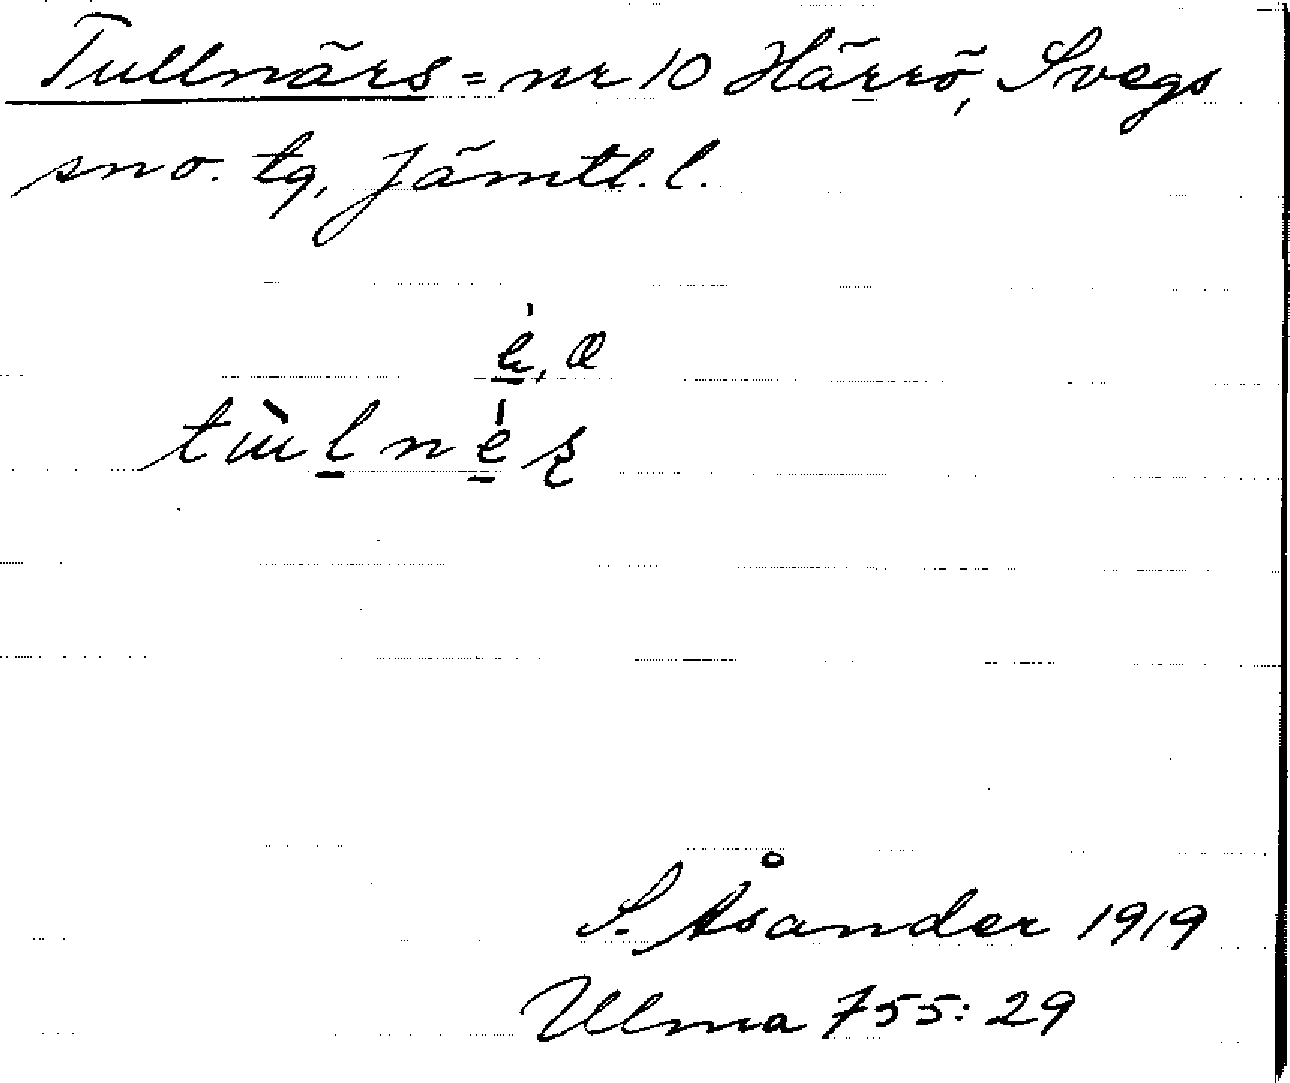 Tullnärs = nr 10 Härrö, Svegs
sno. tg, Jämtl. l.
S. Åsander 1919
Ulma 755:29